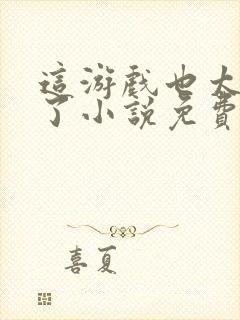 這游戲也太
了小說免費
喜夏